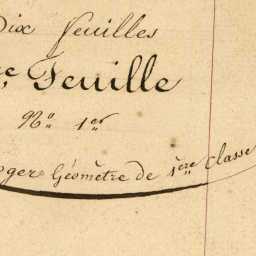 Dix feuilles
Feuille
N.º 1.er
Géomètre de 1ère Classe